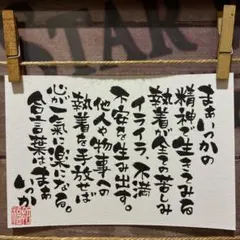 まぁいっかの
精神で生きてみる
執着が全ての苦しみ
イライラ、不満
不安を生み出す。
他人や物事への
執着を手放せば
心が一気に楽になる。
合言葉はまぁ
いっか